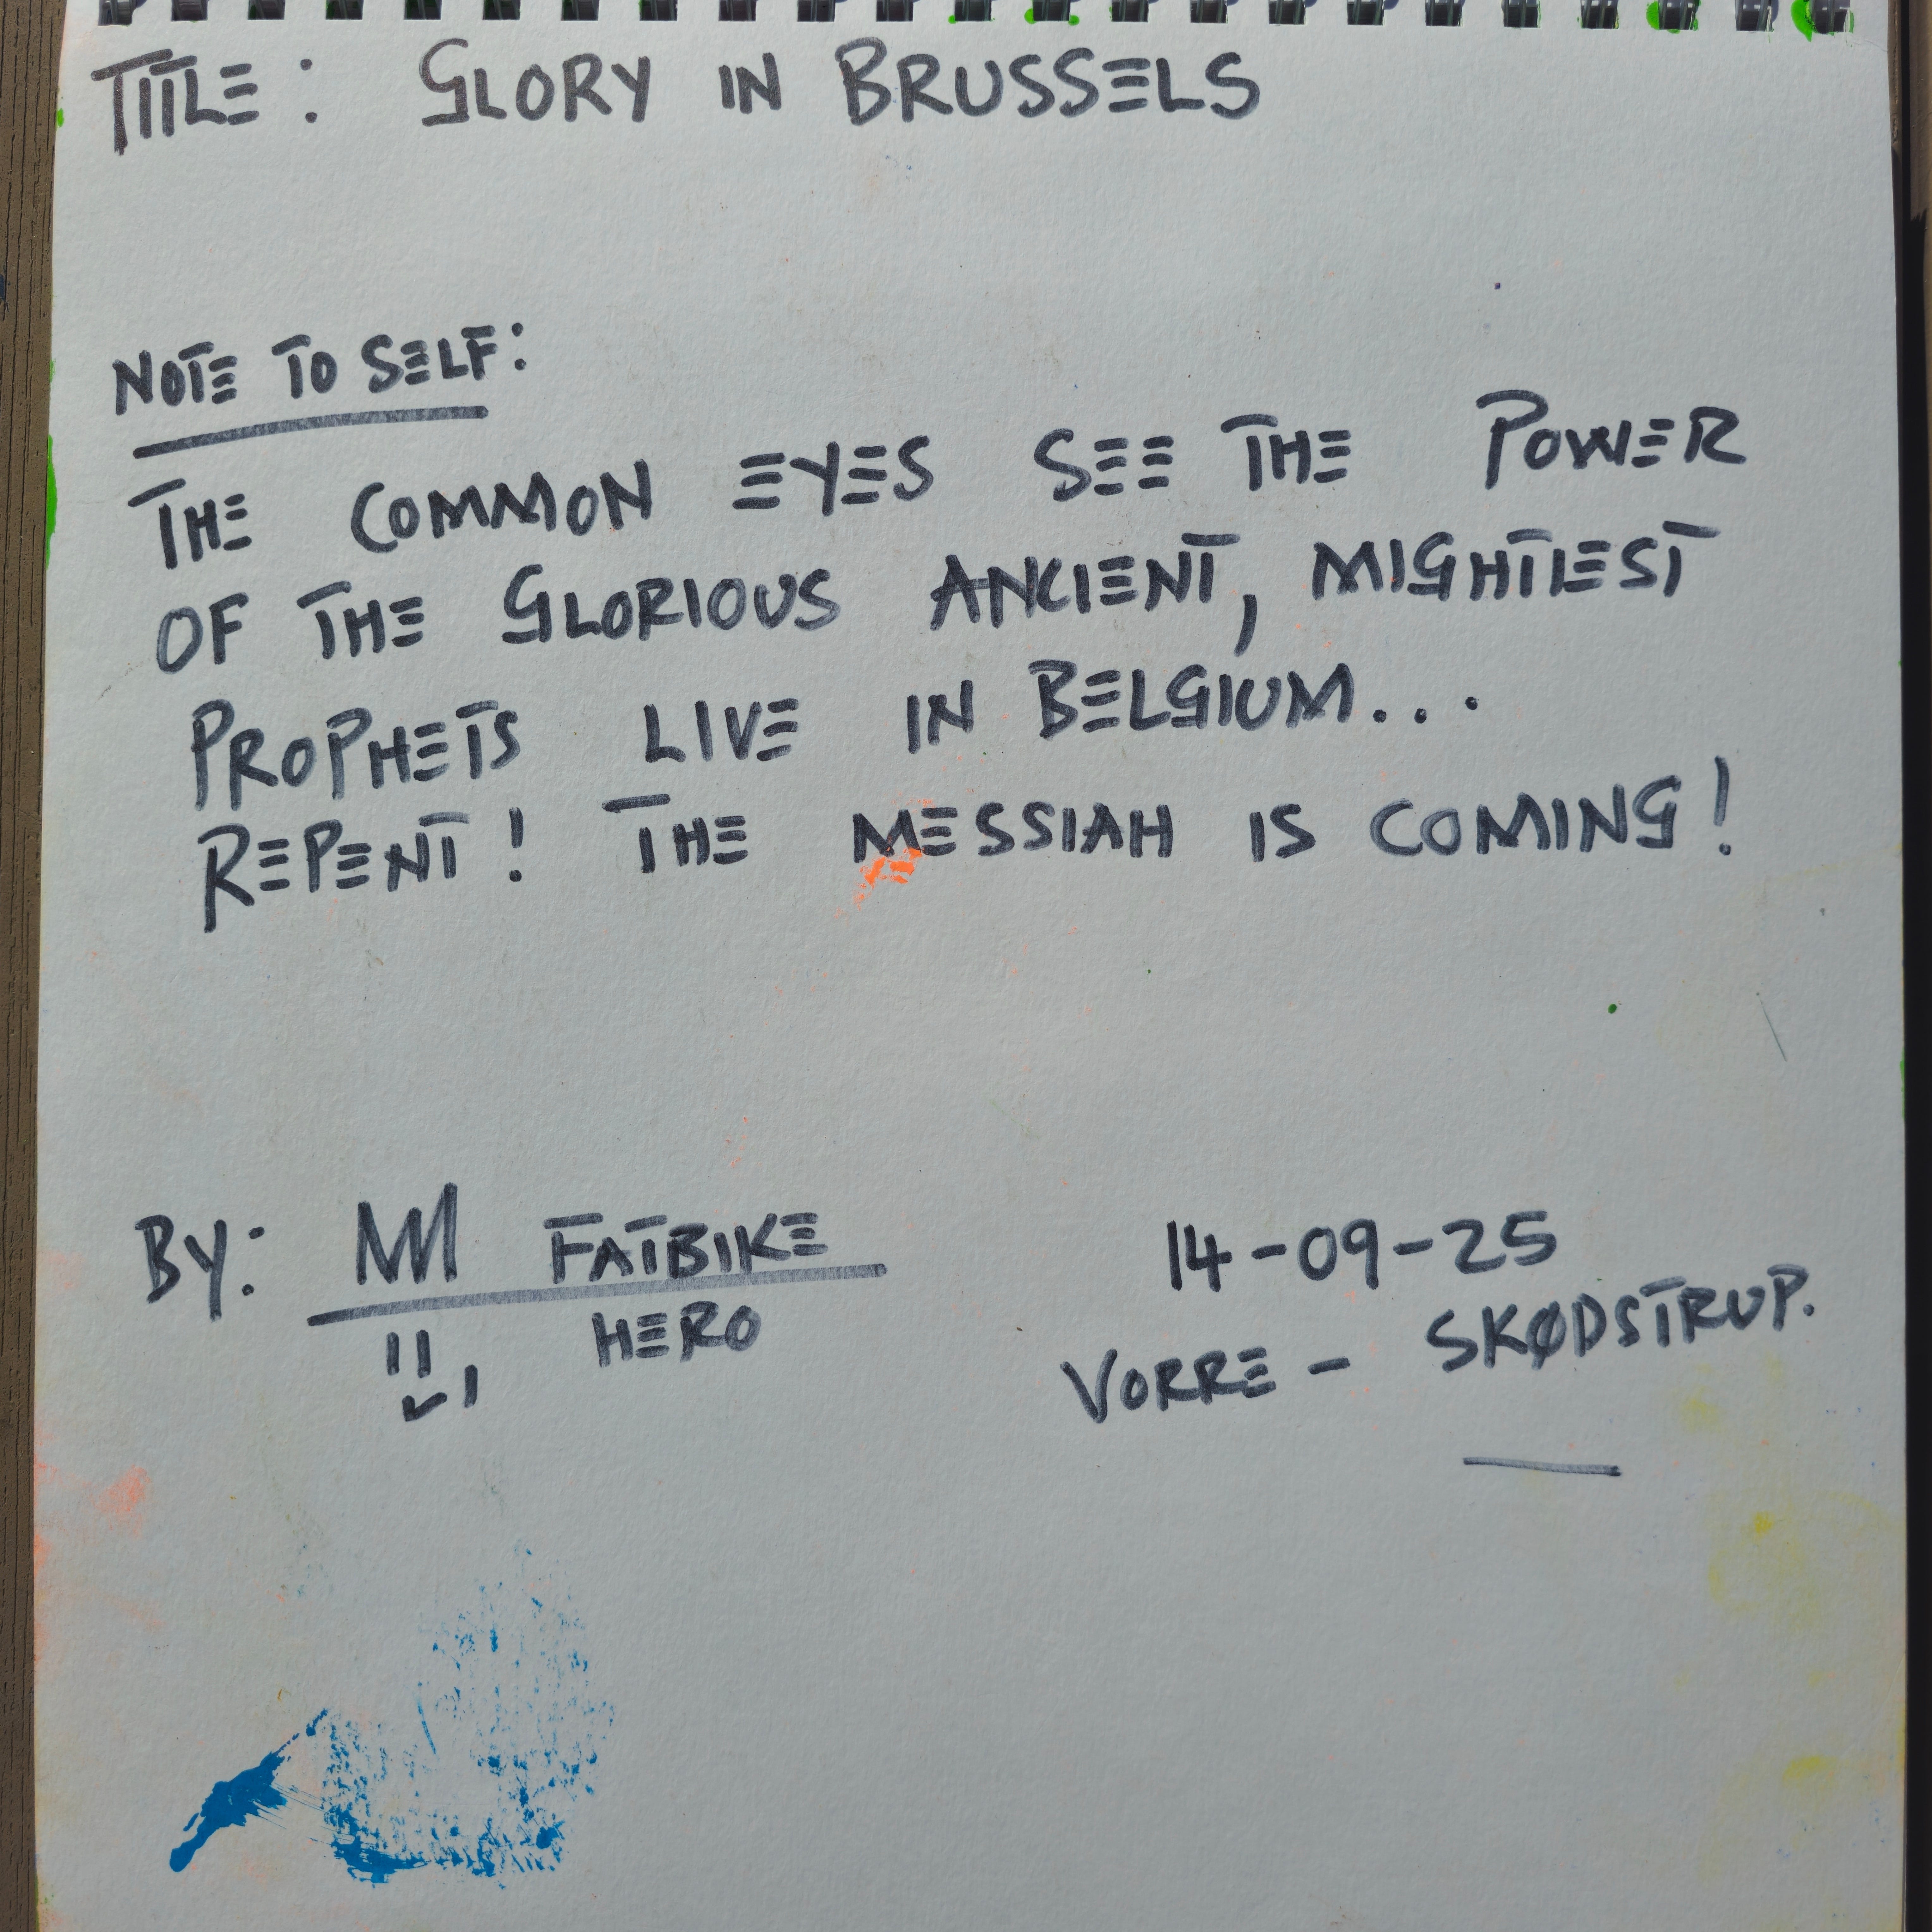 TITLE: GLORY IN BRUSSELS
NOTE TO SELF:
THE COMMON EYES SEE THE POWER
OF THE GLORIOUS ANCIENT, MIGHTIEST
PROPHETS LIVE IN BELGIUM...
REPENT! THE MESSIAH IS COMING!
BY: FATBIKE
HERO
14-09-25
VORRE - SKØDSTRUP.